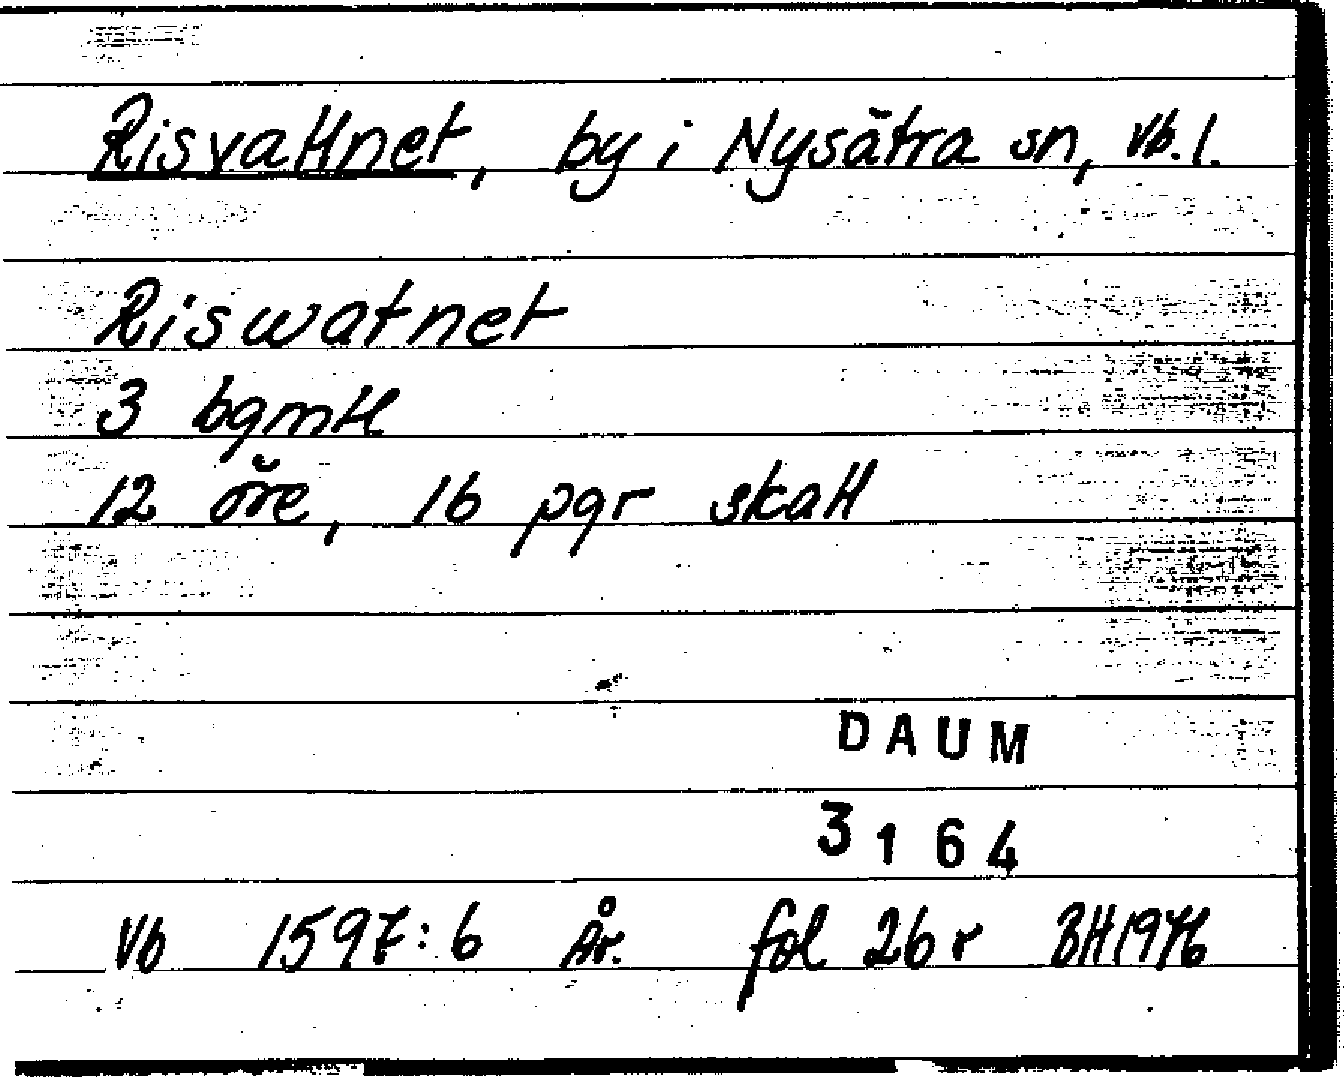 Risvattnet, by i Nysätra sn, Vb. l.
Riswatnet
3 bgmtl
12 öre, 16 pgr skatt
DAUM
3164
Vb 1597:6 År. fol 26 r BH 1976